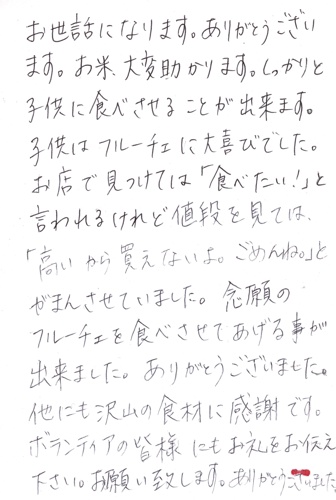 お世話になります。ありがとうござい
ます。お米、大変助かります。しっかりと
子供に食べさせることが出来ます。
子供はフルーチェに大喜びでした。
お店で見つけては「食べたい!」と
言われるけれど値段を見ては、
「高いから買えないよ。ごめんね。」と
がまんさせていました。念願の
フルーチェを食べさせてあげる事が
出来ました。ありがとうございました。
他にも沢山の食材に感謝です。
ボランティアの皆様にもお礼をお伝え
下さい。お願い致します。ありがとうございました